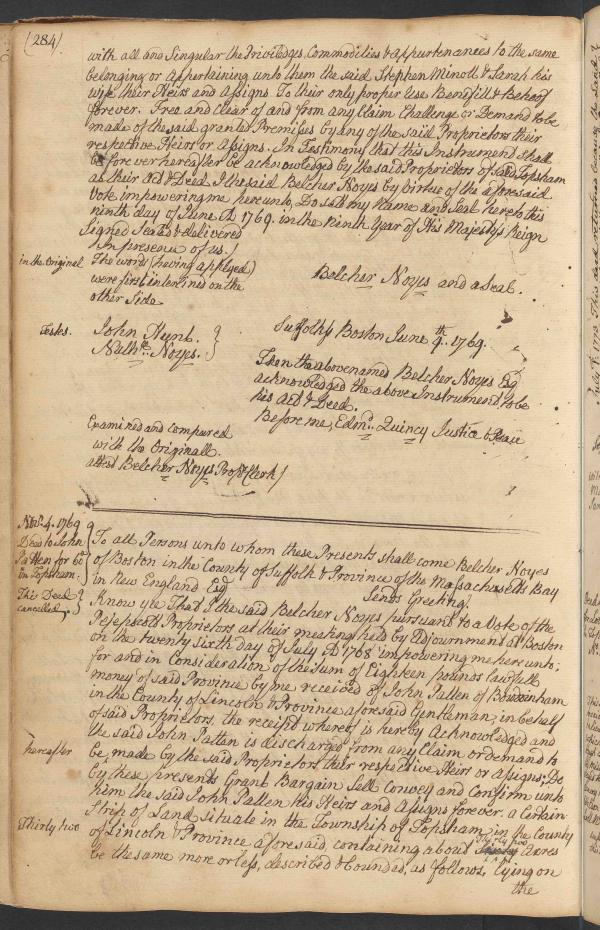 (284)
with all and Singular the Priviledges, Commodities & appurtenances to the same
belonging or appertaining unto them the said Stephen Minott & Sarah his
wife their Heirs and assigns. To their only proper Use Benefitt & Behoof
forever. Free and Clear of and from any Claim Challenge or Demand to be
made of the said granted Premises by any of the said Proprietors their
respective Heirs or assigns. In Testimony that this Instrument shall
forever hereafter be acknowledged by the said Proprietors of said Topsham
as their Act & Deed I the said Belcher Noyes by virtue of the aforesaid
Vote impowering me hereunto, Do sett my Name and Seal hereto this
ninth day of June AD 1769. in the ninth Year of His Majestys Reign
Signed Sealed & delivered
In presence of us.
in the Original The words (having applyed)
were first interlined on the
other side
Belcher Noyes and a Seal.
Testes. John Hunt.
Nathl. Noyes.
Suffolk ss Boston June 9th. 1769.
Then the abovenamed Belcher Noyes Esq
acknowledged the above Instrument to be
his act & Deed.
Before me, Edmd. Quincy Justice o Peace
Examined and compared
with the Originall.
attest Belcher Noyes Props Clerk
Novr. 4. 1769
Deed to John
Patten for 60
in Topsham.
This Deed
cancelled.
To all Persons unto whom these Presents shall come Belcher Noyes
of Boston in the County of Suffolk & Province of the Massachusetts Bay
in New England Esq Sends Greeting.
Know ye That I the said Belcher Noyes pursuant to a Vote of the
Pejepscot Proprietors at their meeting held by Adjournment at Boston
on the twenty sixth day of July AD 1768 impowering me hereunto;
for and in Consideration of the Sum of Eighteen pounds lawfull
money of said Province by me received of John Patten of Bowdoinham
in the County of Lincoln & Province aforesaid Gentleman, in behalf
of said Proprietors, the receipt whereof is hereby Acknowledged and
the said John Patten is discharged from any Claim or demand to
hereafter
be, made by the said Proprietors their respective Heirs or assigns; Do
by these presents Grant Bargain Sell Convey and Confirm unto
him the said John Patten his Heirs and Assigns forever, a Certain
Strip of Land situate in the Township of Topsham, in the County
Thirty two
of Lincoln & Province aforesaid, containing about Thirty two Acres
be the same more or less, described & bounded, as follows, lying on
the